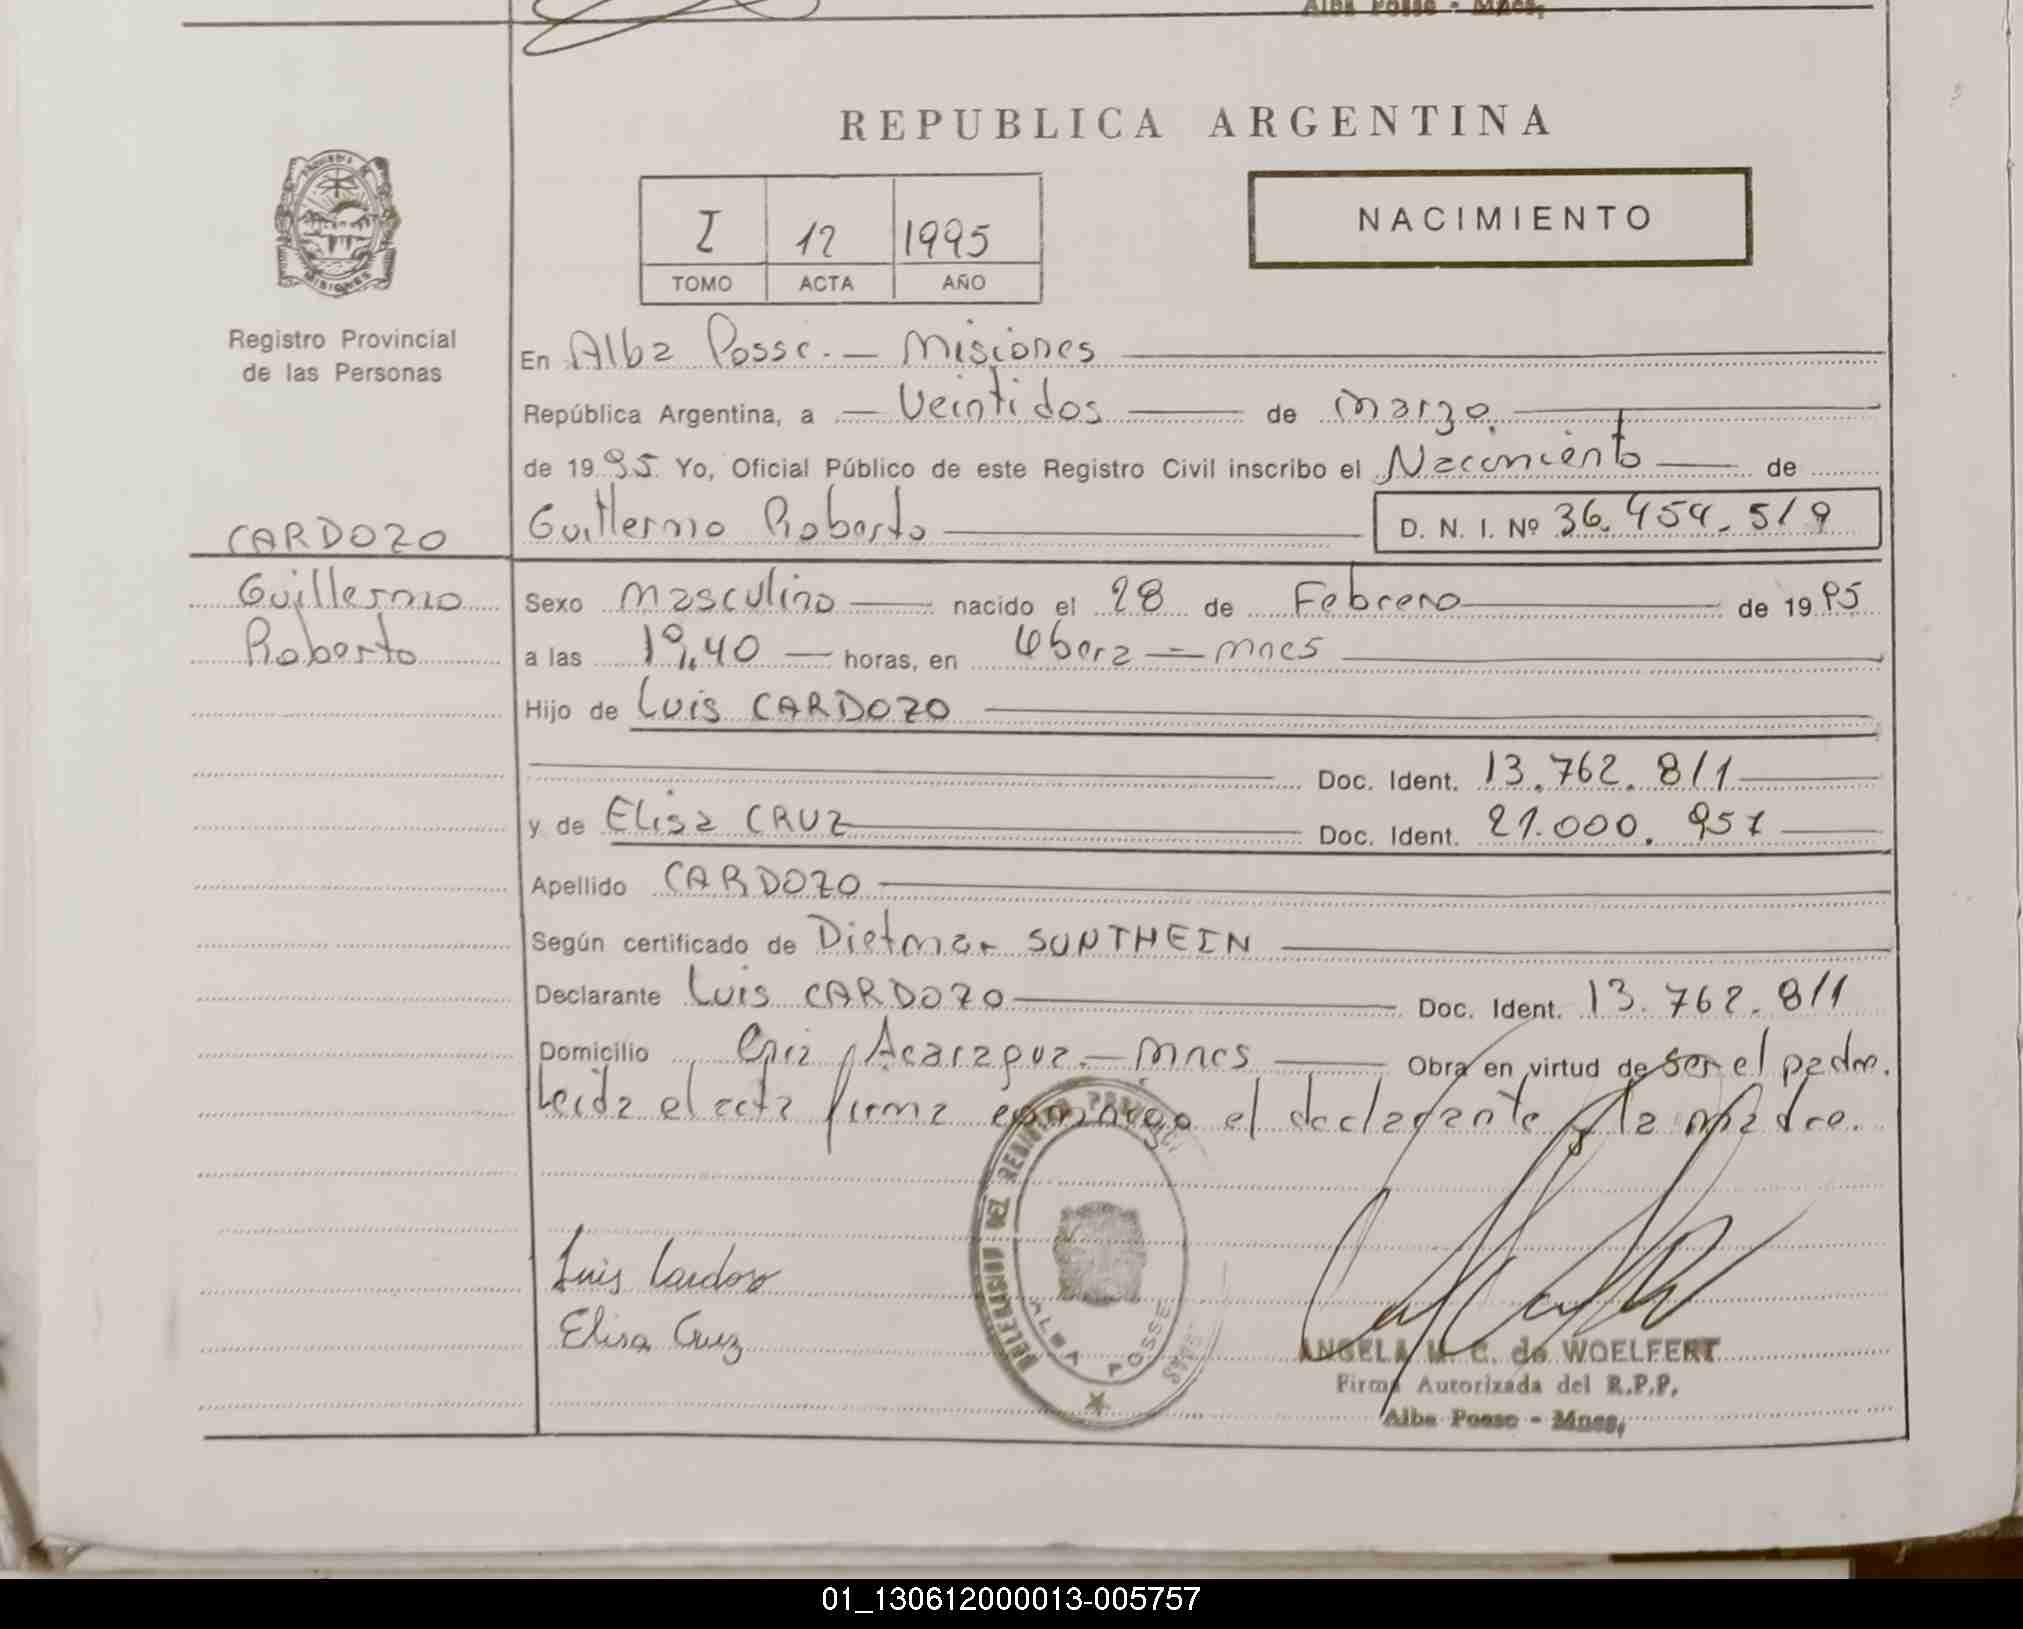 Alba Posse - Mnes,
REPUBLICA ARGENTINA
I 12 1995
TOMO ACTA AÑO
NACIMIENTO
MISIONES
Registro Provincial
de las Personas
En Alba Posse. — Misiones
República Argentina, a — Veintidos — de Marzo.
de 1995. Yo, Oficial Público de este Registro Civil inscribo el Nacimiento — de
CARDOZO
Guillermo Roberto
D. N. I. Nº 36.454.519
Guillermo
Roberto
Sexo Masculino — nacido el 28 de Febrero de 1995
a las 19,40 — horas, en Obera — Mnes
Hijo de Luis CARDOZO
Doc. Ident. 13.762.811
y de Elisa CRUZ Doc. Ident. 21.000.957
Apellido CARDOZO
Según certificado de Dietmar SONTHEIN
Declarante Luis CARDOZO Doc. Ident. 13.762.811
Domicilio Acaragua. — Mnes — Obra en virtud de ser el padre.
Leida el acta firma conmigo el declarante y la madre.
DELEGACION DEL REGISTRO
ALBA POSSE
Luis Cardozo
Elisa Cruz
ANGELA M. C. de WOELFERT
Firma Autorizada del R.P.P.
Alba Posse - Mnes,
01_130612000013-005757